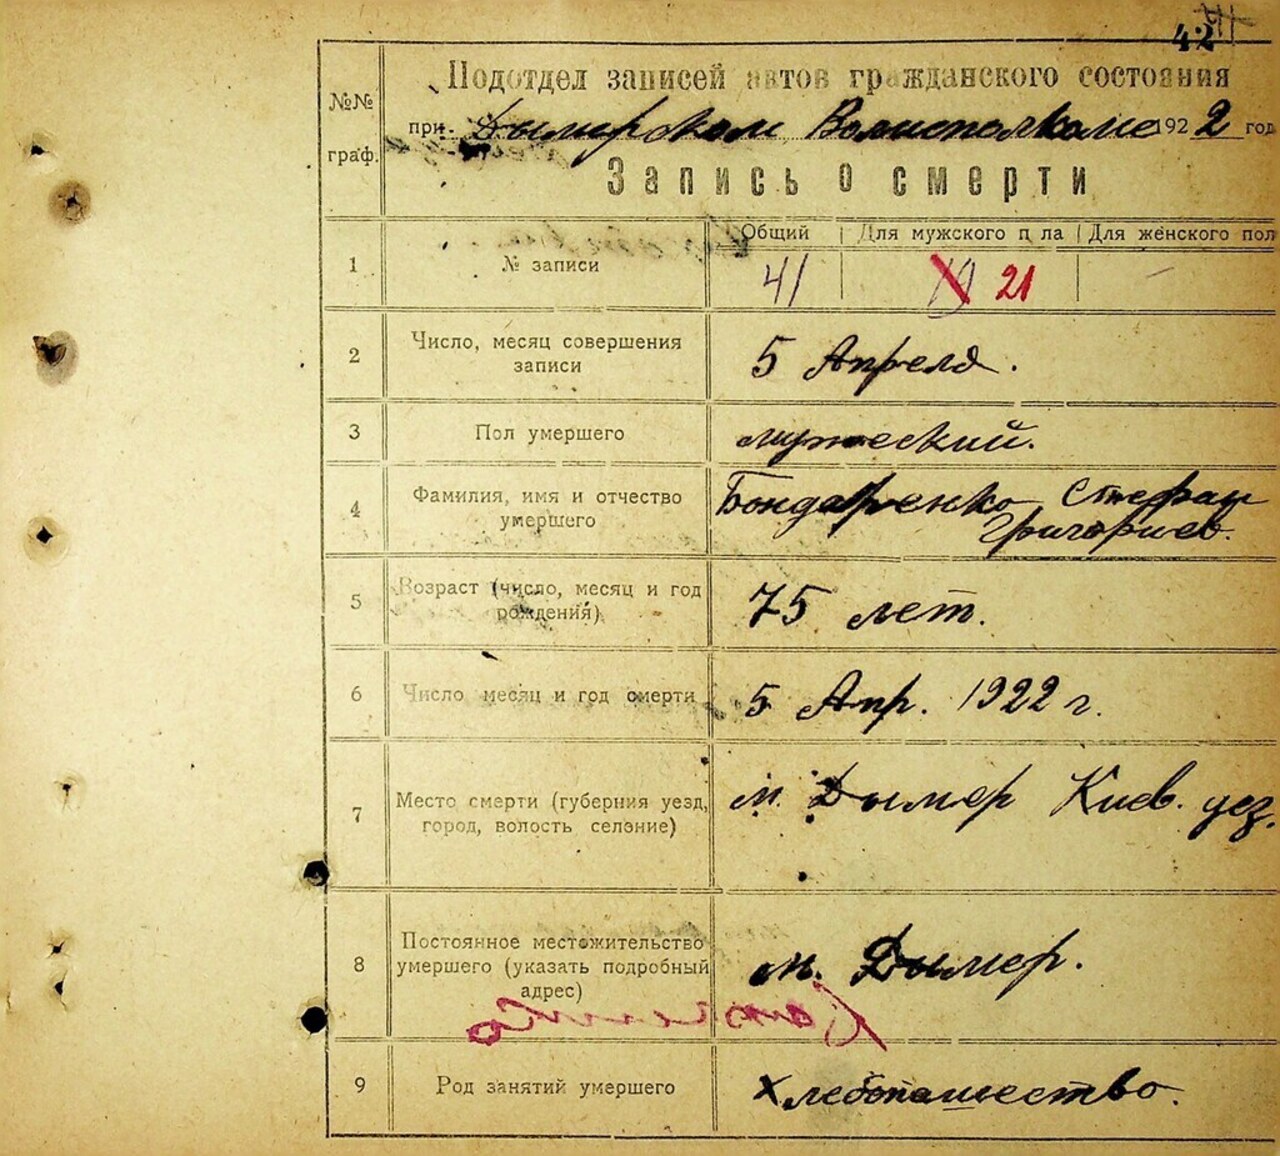 42
Подотдел записей актов гражданского состояния
при Дымерском Волисполкоме 1922 год
№№ граф.
Запись о смерти
Общий | Для мужского п ла | Для женского пол
1 № записи 41 21 —
2 Число, месяц совершения
записи
5 Апреля.
3 Пол умершего мужеский.
4 Фамилия, имя и отчество
умершего
Бондаренко Стефан
Григориев.
5 Возраст (число, месяц и год
рождения)
75 лет.
6 Число месяц и год смерти 5 Апр. 1922 г.
7 Место смерти (губерния уезд,
город, волость селение)
м. Дымер Киев. уез.
8 Постоянное местожительство
умершего (указать подробный
адрес)
м. Дымер.
9 Род занятий умершего Хлебопашество.